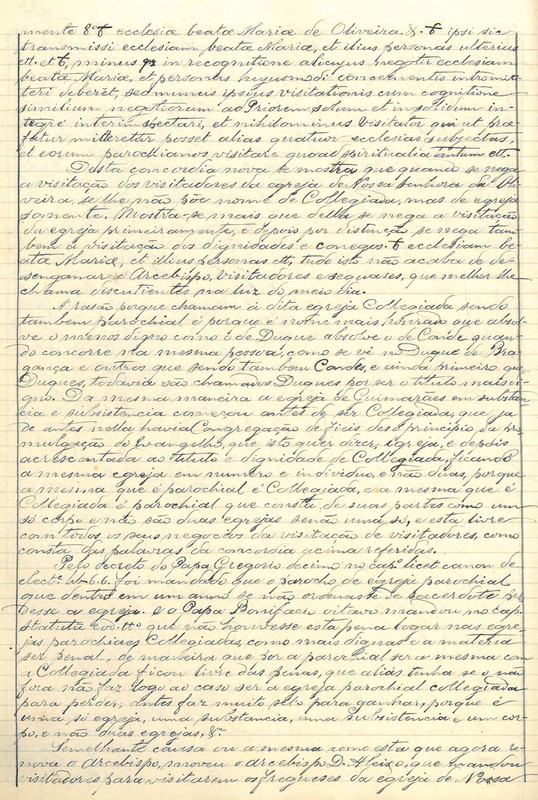 mente 8º ℔ ecclesia beata Maria de Oliveira. &. ℔ ipsi sic
transmissi ecclesiam beata Maria, et illius personas ulterius
et. ℔, minus in recognitione alicujus negotii ecclesiam
beata, Maria, et personas hujusmodi concernentis intromit-
teri deberet, sed munus ipsius visitationis cum cognitione
similium negotiorum ad Priorem solum et in solidum in-
tegre interim spectari, et nihilominus visitator qui ut prae
fatur mitteretur posset alias quatuor ecclesias subjectas,
et eorum parochianos, visitare quoad spiritualia tantum ett.
Desta concordia nova se mostra que quando se nega
a visitação dos visitadores da egreja de Nossa Senhora da Oli-
veira, se lhe não põe nome de Collegiada, mas de egreja
somente. Mostra-se mais que della se nega a visitação
da egreja primeiramente, e depois por distincção se nega tam-
bem a visitação das dignidades e conegos. ℔ ecclesiam be-
ata Maria, et illius personas ett, tudo isto não acaba de de-
senganar o Arcebispo, visitadores e sequases, que melhor lhe
chama discutientes na luz do meio dia.
A rasão porque chamam á dita egreja Collegiada sendo
tambem parochial é porque é nome mais honrado que absol-
ve o menos digno como é de Duque absolve o de Conde quan-
do concorre na mesma pessoa, como se vê no Duque de Bra-
gança e outros que sendo tambem Condes, e ainda primeiro que
Duques, todavia são chamados Duques por ser o titulo mais di-
gno. Da mesma maneira a egreja de Guimarães em substan-
cia e subsistencia começou antes de ser Collegiada, que já
de antes nella havia Congregação de fieis desde o principio da pro-
mulgação do Evangelho, que isto quer dizer, Egreja, e depois
acrescentada ao titulo e dignidade de Collegiada, ficando
a mesma egreja em numero e individuo, e não duas, porque
a mesma que é parochial é Collegiada, e a mesma que é
Collegiada é parochial que consta de suas partes como um
só corpo e não são duas egrejas senão uma só, e esta livre
com todos os seus negocios da visitação de visitadores, como
consta das palavras da concordia acima referidas.
Pelo decreto do Papa Gregorio decimo no capº licet canon de
electº. in 6. 6. foi mandado que o parocho de egreja parochial
que dentro em um anno se não ordenasse de sacerdote per-
desse a egreja. E o Papa Bonifacio oitavo mandou no cap.
statutum eod. ttº que não houvesse esta pena logar nas egre-
jas parochiaes Collegiadas como mais dignas e a materia
ser penal, de maneira que por a parochial ser a mesma com
a Collegiada ficou livre das penas, que aliás tinha se o não
fora não faz logo ao caso ser a egreja parochial collegiada
para perder, antes faz muito pelo para ganhar, porque é
uma só egreja, uma substancia, uma subsistencia e um cor-
po, e não duas egrejas, &ª
Semelhante causa ou a mesma como esta que agora re-
nova o Arcebispo, moveu o arcebispo D. Aleixo, que mandou
visitadores para visitarem os freguezes da egreja de Nossa